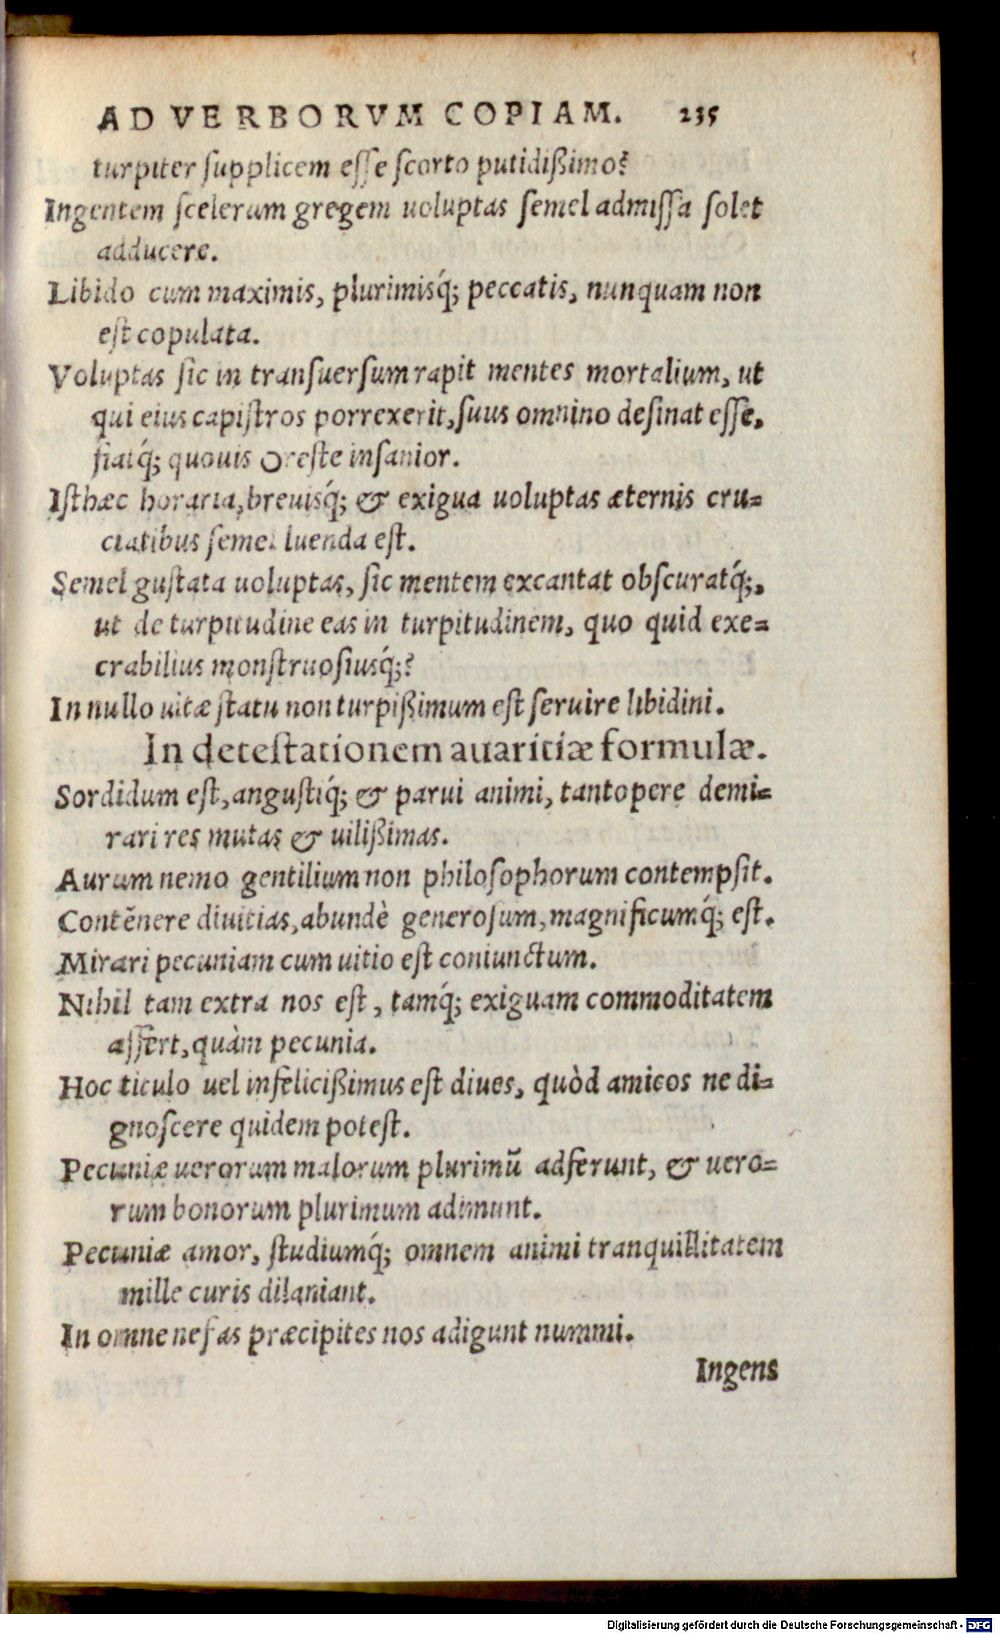 AD VERBORVM COPIAM. 235
turpiter ſupplicem eſſe ſcorto putidißimo?
Ingentem ſcelerum gregem uoluptas ſemel admiſſa ſolet
adducere.
Libido cum maximis, plurimisq́; peccatis, nunquam non
eſt copulata.
Voluptas ſic in tranſuerſum rapit mentes mortalium, ut
qui eius capiſtros porrexerit, ſuus omnino deſinat eſſe,
fiatq́; quouis Oreſte inſanior.
Iſthæc horaria, breuisq́; & exigua uoluptas æternis cru=
ciatibus ſemel luenda eſt.
Semel guſtata uoluptas, ſic mentem excantat obſcuratq́;,
ut de turpitudine eas in turpitudinem, quo quid exe=
crabilius monſtruoſiusq́;?
In nullo uitæ ſtatu non turpißimum eſt ſeruire libidini.
In deteſtationem auaritiæ formulæ.
Sordidum eſt, anguſtiq́; & parui animi, tantopere demi=
rari res mutas & uilißimas.
Aurum nemo gentilium non philoſophorum contempſit.
Contẽnere diuitias, abundè generoſum, magnificumq́; eſt.
Mirari pecuniam cum uitio eſt coniunctum.
Nihil tam extra nos eſt, tamq́; exiguam commoditatem
affert, quàm pecunia.
Hoc titulo uel infelicißimus eſt diues, quòd amicos ne di=
gnoſcere quidem poteſt.
Pecuniæ uerorum malorum plurimũ adferunt, & uero=
rum bonorum plurimum adimunt.
Pecuniæ amor, ſtudiumq́; omnem animi tranquillitatem
mille curis dilaniant.
In omne nefas præcipites nos adigunt nummi.
Ingens
Digitalisierung gefördert durch die Deutsche Forschungsgemeinschaft - DFG